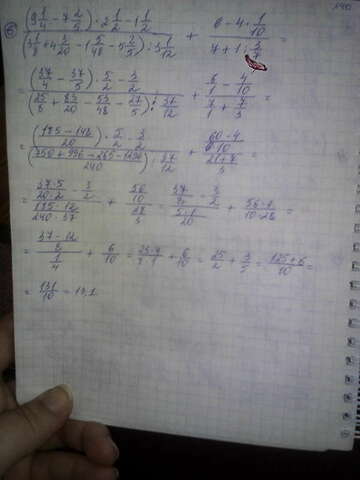 б) ((9 1/4 - 7 2/5) · 2 1/2 - 1 1/2) / ((3 1/8 + 4 3/20 - 1 5/48 - 5 2/5) : 3 1/12) + (6 - 4 · 1/10) / (7 + 1 : 3/7) =
= ((37/4 - 37/5) · 5/2 - 3/2) / ((25/8 + 83/20 - 53/48 - 27/5) : 37/12) + (6/1 - 4/10) / (7/1 + 7/3) =
= ((185 - 148)/20 · 5/2 - 3/2) / ((750 + 996 - 265 - 1296)/240 : 37/12) + ((60 - 4)/10) / ((21 + 7)/3) =
= (37·5/20·2 - 3/2) / (185·12/240·37) + (56/10) / (28/3) = (37/8 - 3/2) / (5·1/20) + 56·3/10·28 =
= ((37 - 12)/8) / (1/4) + 6/10 = 25·4/8·1 + 6/10 = 25/2 + 3/5 = (125 + 6)/10 =
= 131/10 = 13,1